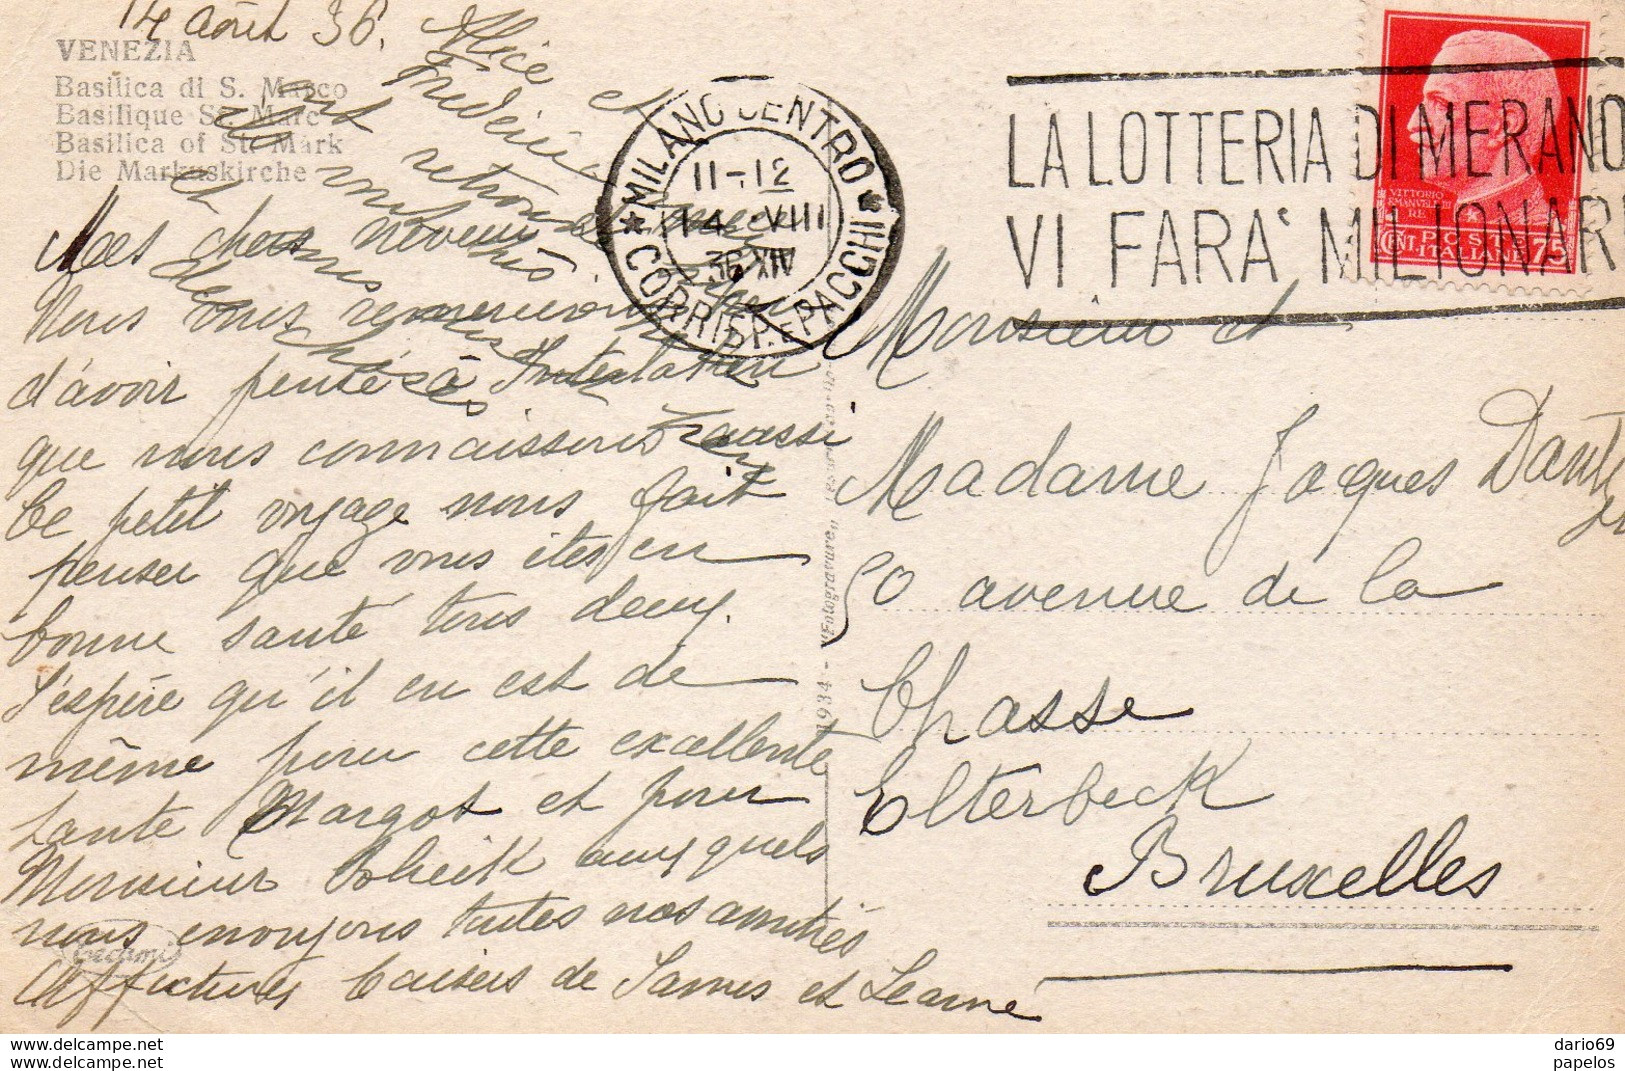 14 août 36.
VENEZIA
Basilica di S. Marco
Basilique St. Marc
Basilica of St. Mark
Die Markuskirche
Alice et
Frédéric
ont retrouvé
Mes chers Neveu
Nous vous remercions
d'avoir pensé à Interlaken
que nous connaissons aussi
Ce petit voyage nous fait
penser que vous êtes en
bonne santé tous deux.
J'espère qu'il en est de
même pour cette excellente
tante Margot et pour
Monsieur auxquels
nous envoyons toutes nos amitiés
Affectueux baisers de et
MILANO CENTRO
11-12
14 VIII
36 XIV
CORRISP. E PACCHI
LA LOTTERIA DI MERANO
VI FARA' MILIONARI
VITTORIO
EMANUELE III
RE
POSTE
ITALIANE
CENT. 75
Monsieur et
Madame Jacques
50 avenue de la
Chasse
Elterbeck
Bruxelles
1934 - "Fotogravure"
Cecami
www.delcampe.net
www.delcampe.net
dario69
papelos